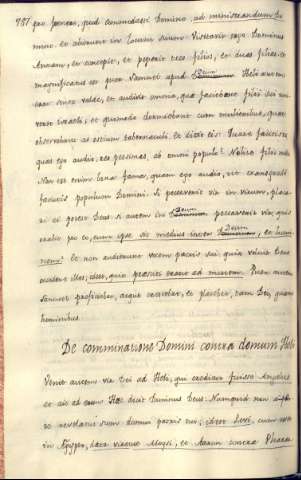 787. pro foenore, quod commodasti Domino, ad ministrandum Do-
mino. et abierunt in locum suum. Visitavit ergo Dominus
Annam, et concepit, et peperit tres filios, et duas filias: et
magnificatus est puer Samuel apud Deum. Heli autem
senex valde, et audivit omnia, quae faciebant filii sui uni-
verso Israeli: et quomodo dormiebant cum mulieribus, quae
observabant ad ostium tabernaculi. et dixit eis: Quare facitis res,
quas ego audio, res pessimas, ab omni populo? Nolite filii mei:
Non est enim bona fama, quam ego audio, ut transgredi
faciatis populum Domini. Si peccaverit vir in virum, placa-
ri ei potest Deus: si autem in Deum peccaverit vir, quis
orabit pro eo,
et non audierunt vocem patris sui, quia voluit Deus
occidere illos, Puer autem
Samuel proficiebat, atque crescebat, et placebat tam Deo, quam
hominibus.
De comminatione Domini contra domum Heli
Venit autem vir Dei ad Heli, quem credimus fuisse Angelum
et ait ad eum: Haec dicit Dominus Deus: Numquid non
revelatus sum domui patris tui, cum esset
in Aegypto, contra Pharao